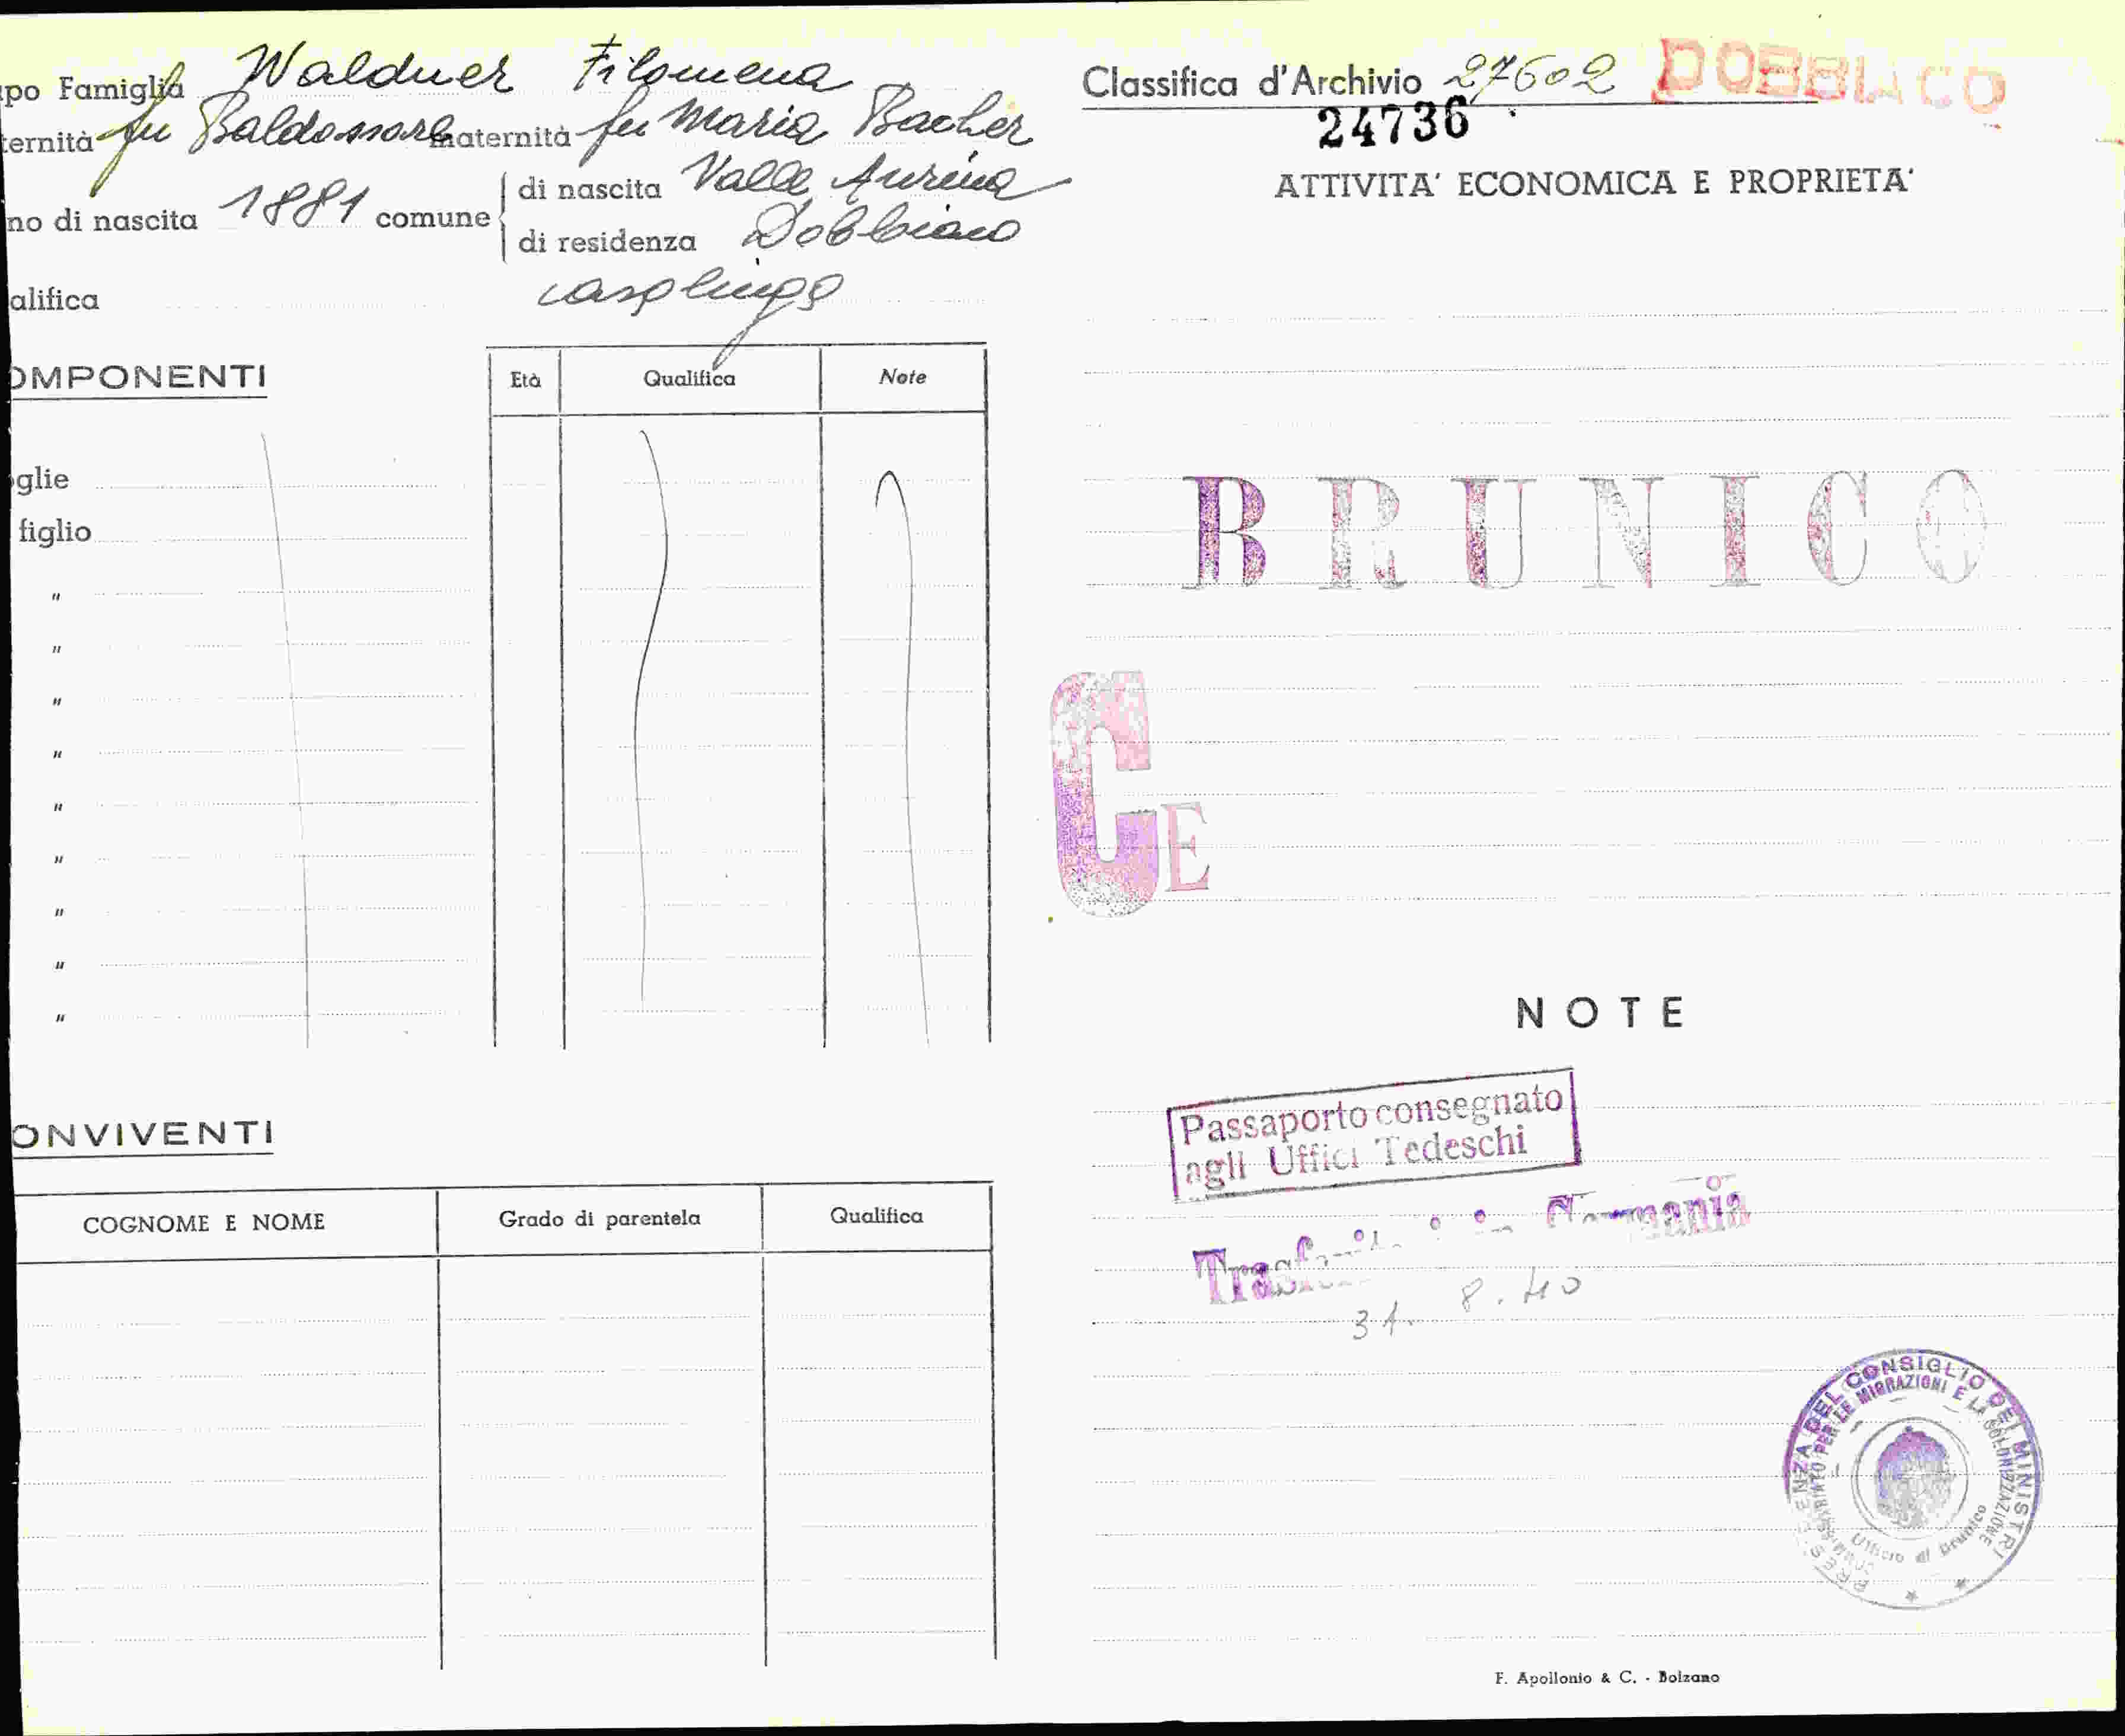 po Famiglia Walduer Filomena
ternità fu Baldassare maternità fu Maria Bacher
no di nascita 1881 comune di nascita Valle Aurina
di residenza Dobbiaco
alifica casalinga
OMPONENTI
Età Qualifica Note
glie
figlio
"
"
"
"
"
"
"
"
"
ONVIVENTI
COGNOME E NOME Grado di parentela Qualifica
Classifica d'Archivio 27602 DOBBIACO
24736
ATTIVITA' ECONOMICA E PROPRIETA'
BRUNICO
CE
NOTE
Passaporto consegnato
agli Uffici Tedeschi
Trasferito in Germania
31. 8. 40
PRESIDENZA DEL CONSIGLIO DEI MINISTRI
COMMISSARIATO PER LE MIGRAZIONI E LA COLONIZZAZIONE
Ufficio di Brunico
F. Apollonio & C. - Bolzano